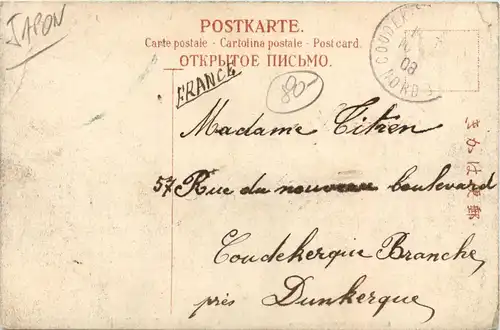 JAPON
POSTKARTE.
Carte postale - Cartolina postale - Post card.
ОТКРЫТОЕ ПИСЬМО.
FRANCE
80
COUDEK
08
NORD
きかは便郵
Madame Titren
57 Rue du nouveau boulevard
Coudekerque Branche,
près Dunkerque